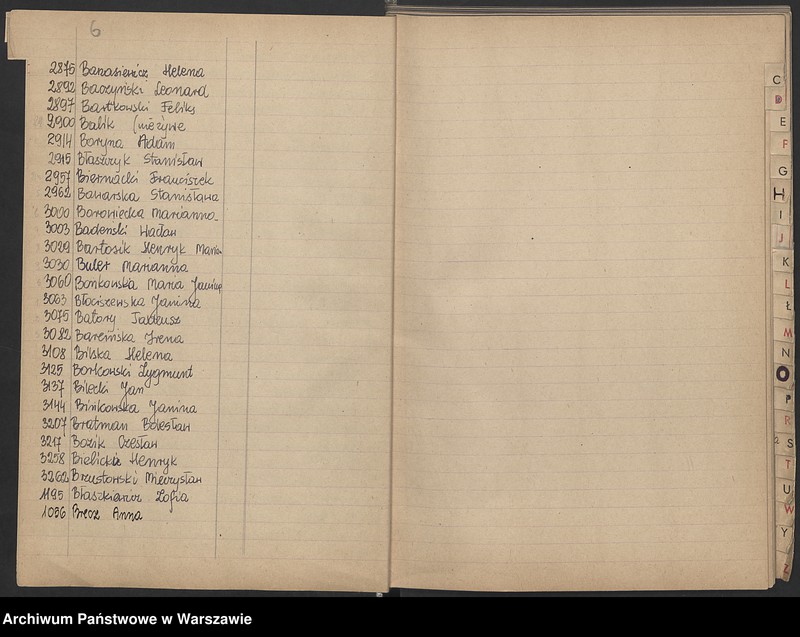 6
2875 Banasiewicz Helena
2892 Baczyński Leonard
2897 Bartkowski Feliks
2900 Balik (nieżywe
2914 Boryna Adam
2915 Błaszczyk Stanisław
2957 Biernacki Franciszek
2962 Banarska Stanisława
3000 Borowiecka Marianna
3003 Badeński Wacław
3029 Bartosik Henryk Maria
3030 Buler Marianna
3060 Bonkowska Maria Janina
3063 Błociszewska Janina
3075 Batory Tadeusz
3082 Bareińska Irena
3108 Bilska Helena
3125 Borkowski Zygmunt
3137 Bilecki Jan
3144 Bińkowska Janina
3207 Bratman Bolesław
3217 Bozik Czesław
3258 Bielicki Henryk
3262 Brzustowski Mieczysław
1195 Zofia
1056 Brecz Anna
C
D
E
F
G
H
I
J
K
L
Ł
M
N
O
P
R
S
T
U
W
Y
Z
Archiwum Państwowe w Warszawie